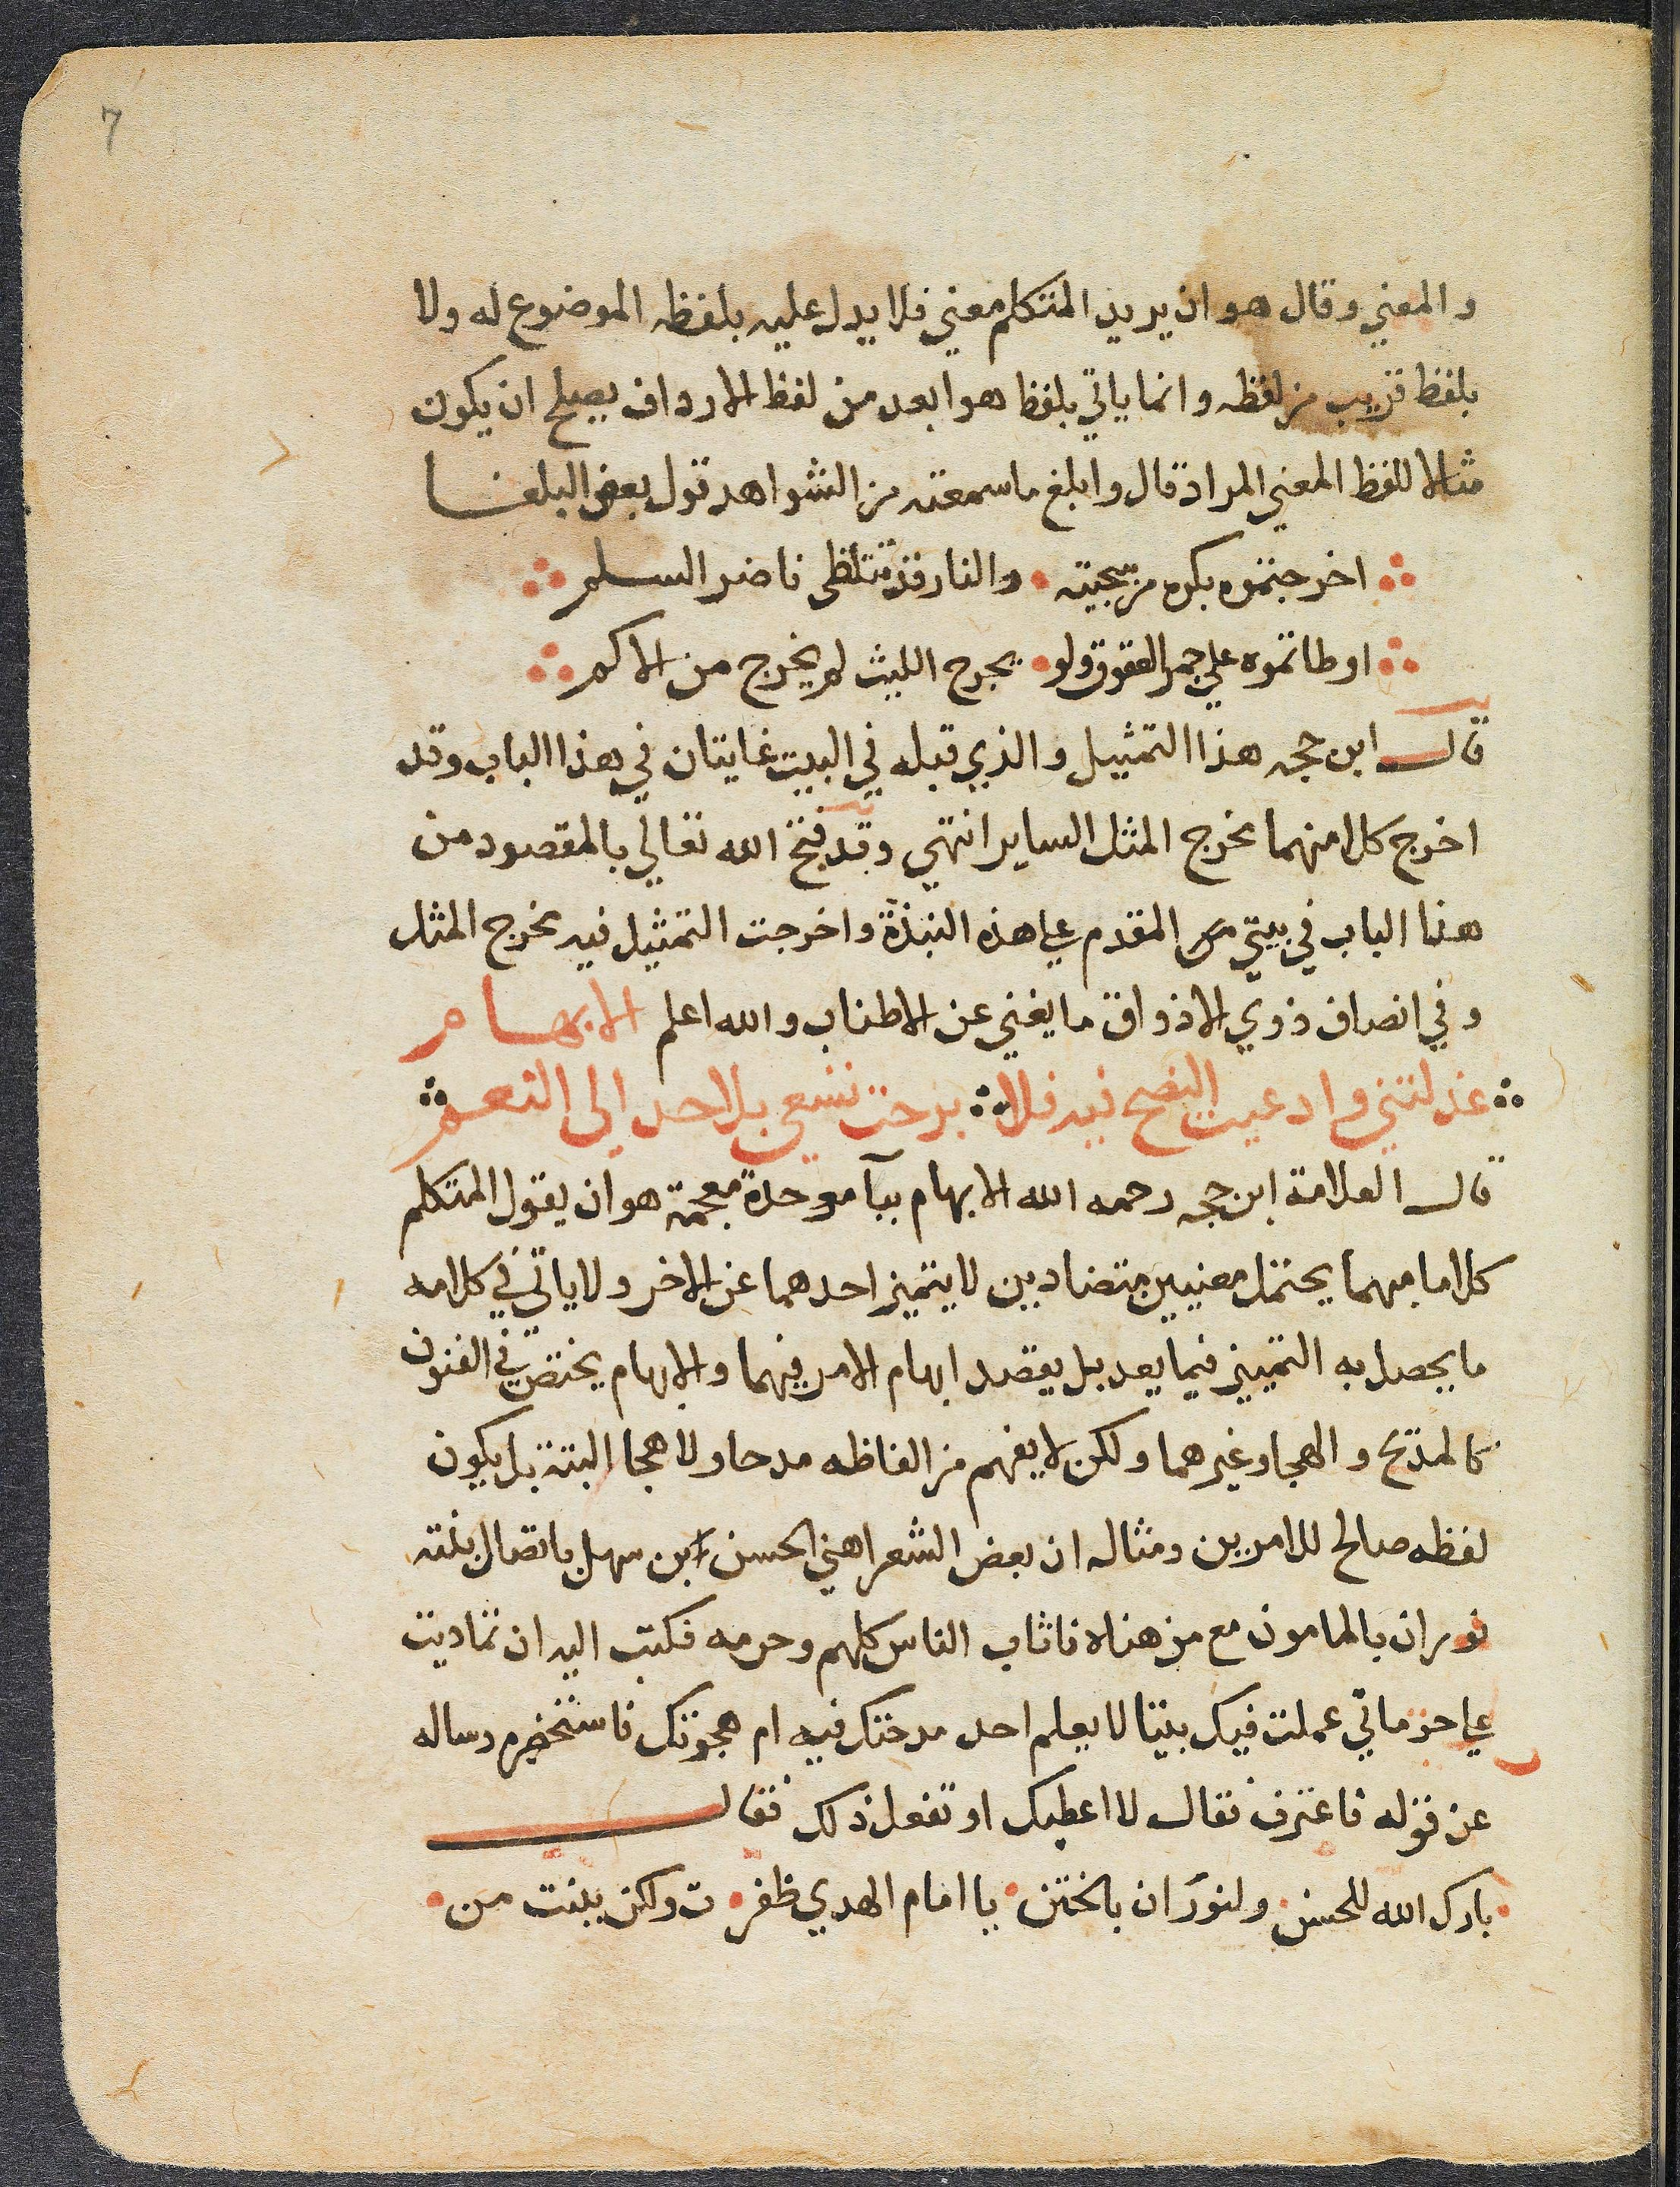 7
والمعني وقال هو ان يريد المتكلم معني فلا يدل عليه بلفظه الموضوع له ولا
بلفظ قريب من لفظه وانما ياتي بلفظ هو ابعد من لفظ الارداف يصلح ان يكون
مثالا للفظ المعني المراد قال وابلغ ما سمعته من الشواهد قول بعض البلغا
اخرجتموه بكره من سجيته والنار قد تتلظى ناضر السلم
اوطاتموه علي جمر العقوق ولو يحرج الليث لم يخرج من الاكم
قال ابن حجه هذا التمثيل والذي قبله في البيت غايتان في هذا الباب وقد
اخرج كلا منهما مخرج المثل الساير انتهي وقد فتح الله تعالي بالمقصود من
هذا الباب في بيتي المقدم علي هذه النبذة واخرجت التمثيل فيه مخرج المثل
وفي انصاف ذوي الاذواق ما يغني عن الاطناب والله اعلم الابهام
عذلتني وادعيت النصح فيه فلا برحت تسعي بلا حد الى النعم
قال العلامة ابن حجه رحمه الله الابهام ببآ موحدة معجمة هو ان يقول المتكلم
كلاما مبهما يحتمل معنيين متضادين لا يتميز احدهما عن الاخر ولا ياتي في كلامه
ما يحصل به التمييز فيما بعد بل يقصد ابهام الامر فيهما والابهام يختص في الفنون
كالمديح والهجا وغيرهما ولكن لا يفهم من الفاظه مدحا ولا هجا البتة بل يكون
لفظه صالح للامرين ومثاله ان بعض الشعرا هني الحسن ابن سهل باتصال بنته
نوران بالمامون مع من هناه فاثاب الناس كلهم وحرمه فكتب اليه ان تماديت
علي حرماني عملت فيك بيتا لا يعلم احد مدحتك فيه ام هجوتك فاستحضره وساله
عن قوله فاعترف فقال لا اعطيك او تفعل ذلك فقال
بارك الله للحسن ولنوران بالختن يا امام الهدي ظفر ت ولكن ببنت من